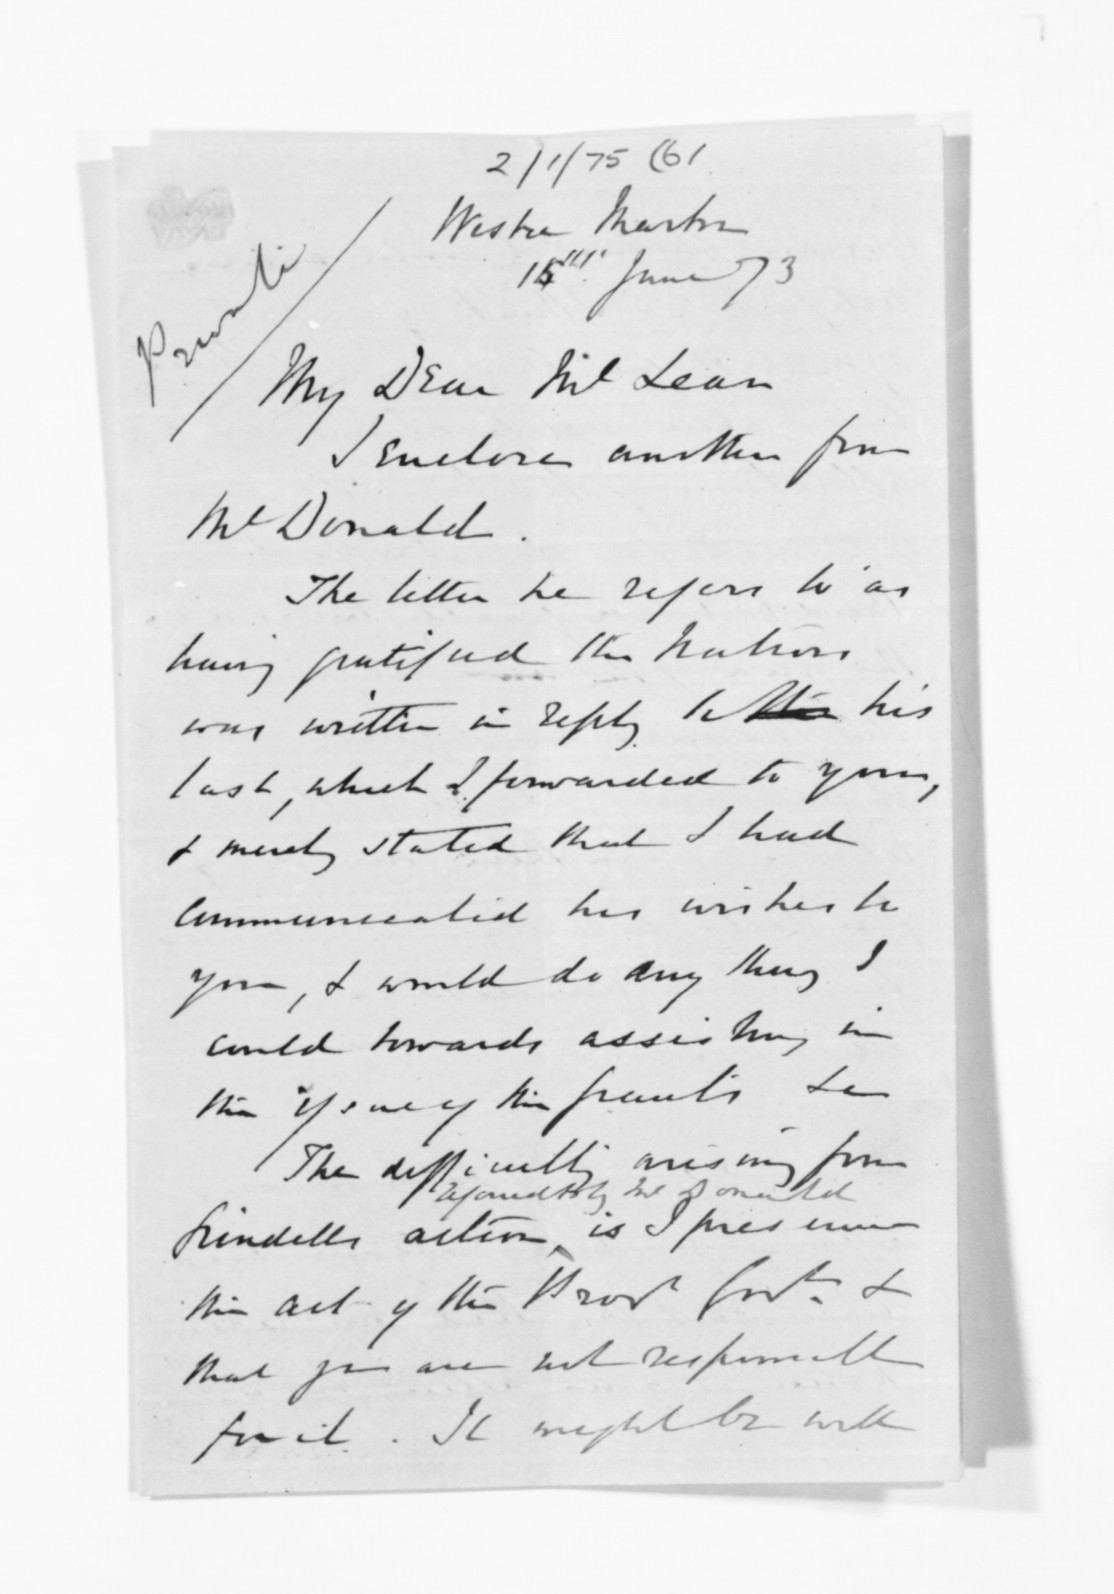 2/1/75 (61
Private
Westre Marton
15th June 73
My Dear McLean
I Enclose another from
McDonald.
The letter he refers to as
having gratified the Natives
was written in reply to his
last, which I forwarded to you,
& merely stated that I had
communicated his wishes to
you, & would do any thing I
could towards assisting in
the issue of the grants &c
The difficulty arising from
referred to by McDonald
action is I presume
the act of the Provl Govt. &
that you are not responsible
for it. It might be well